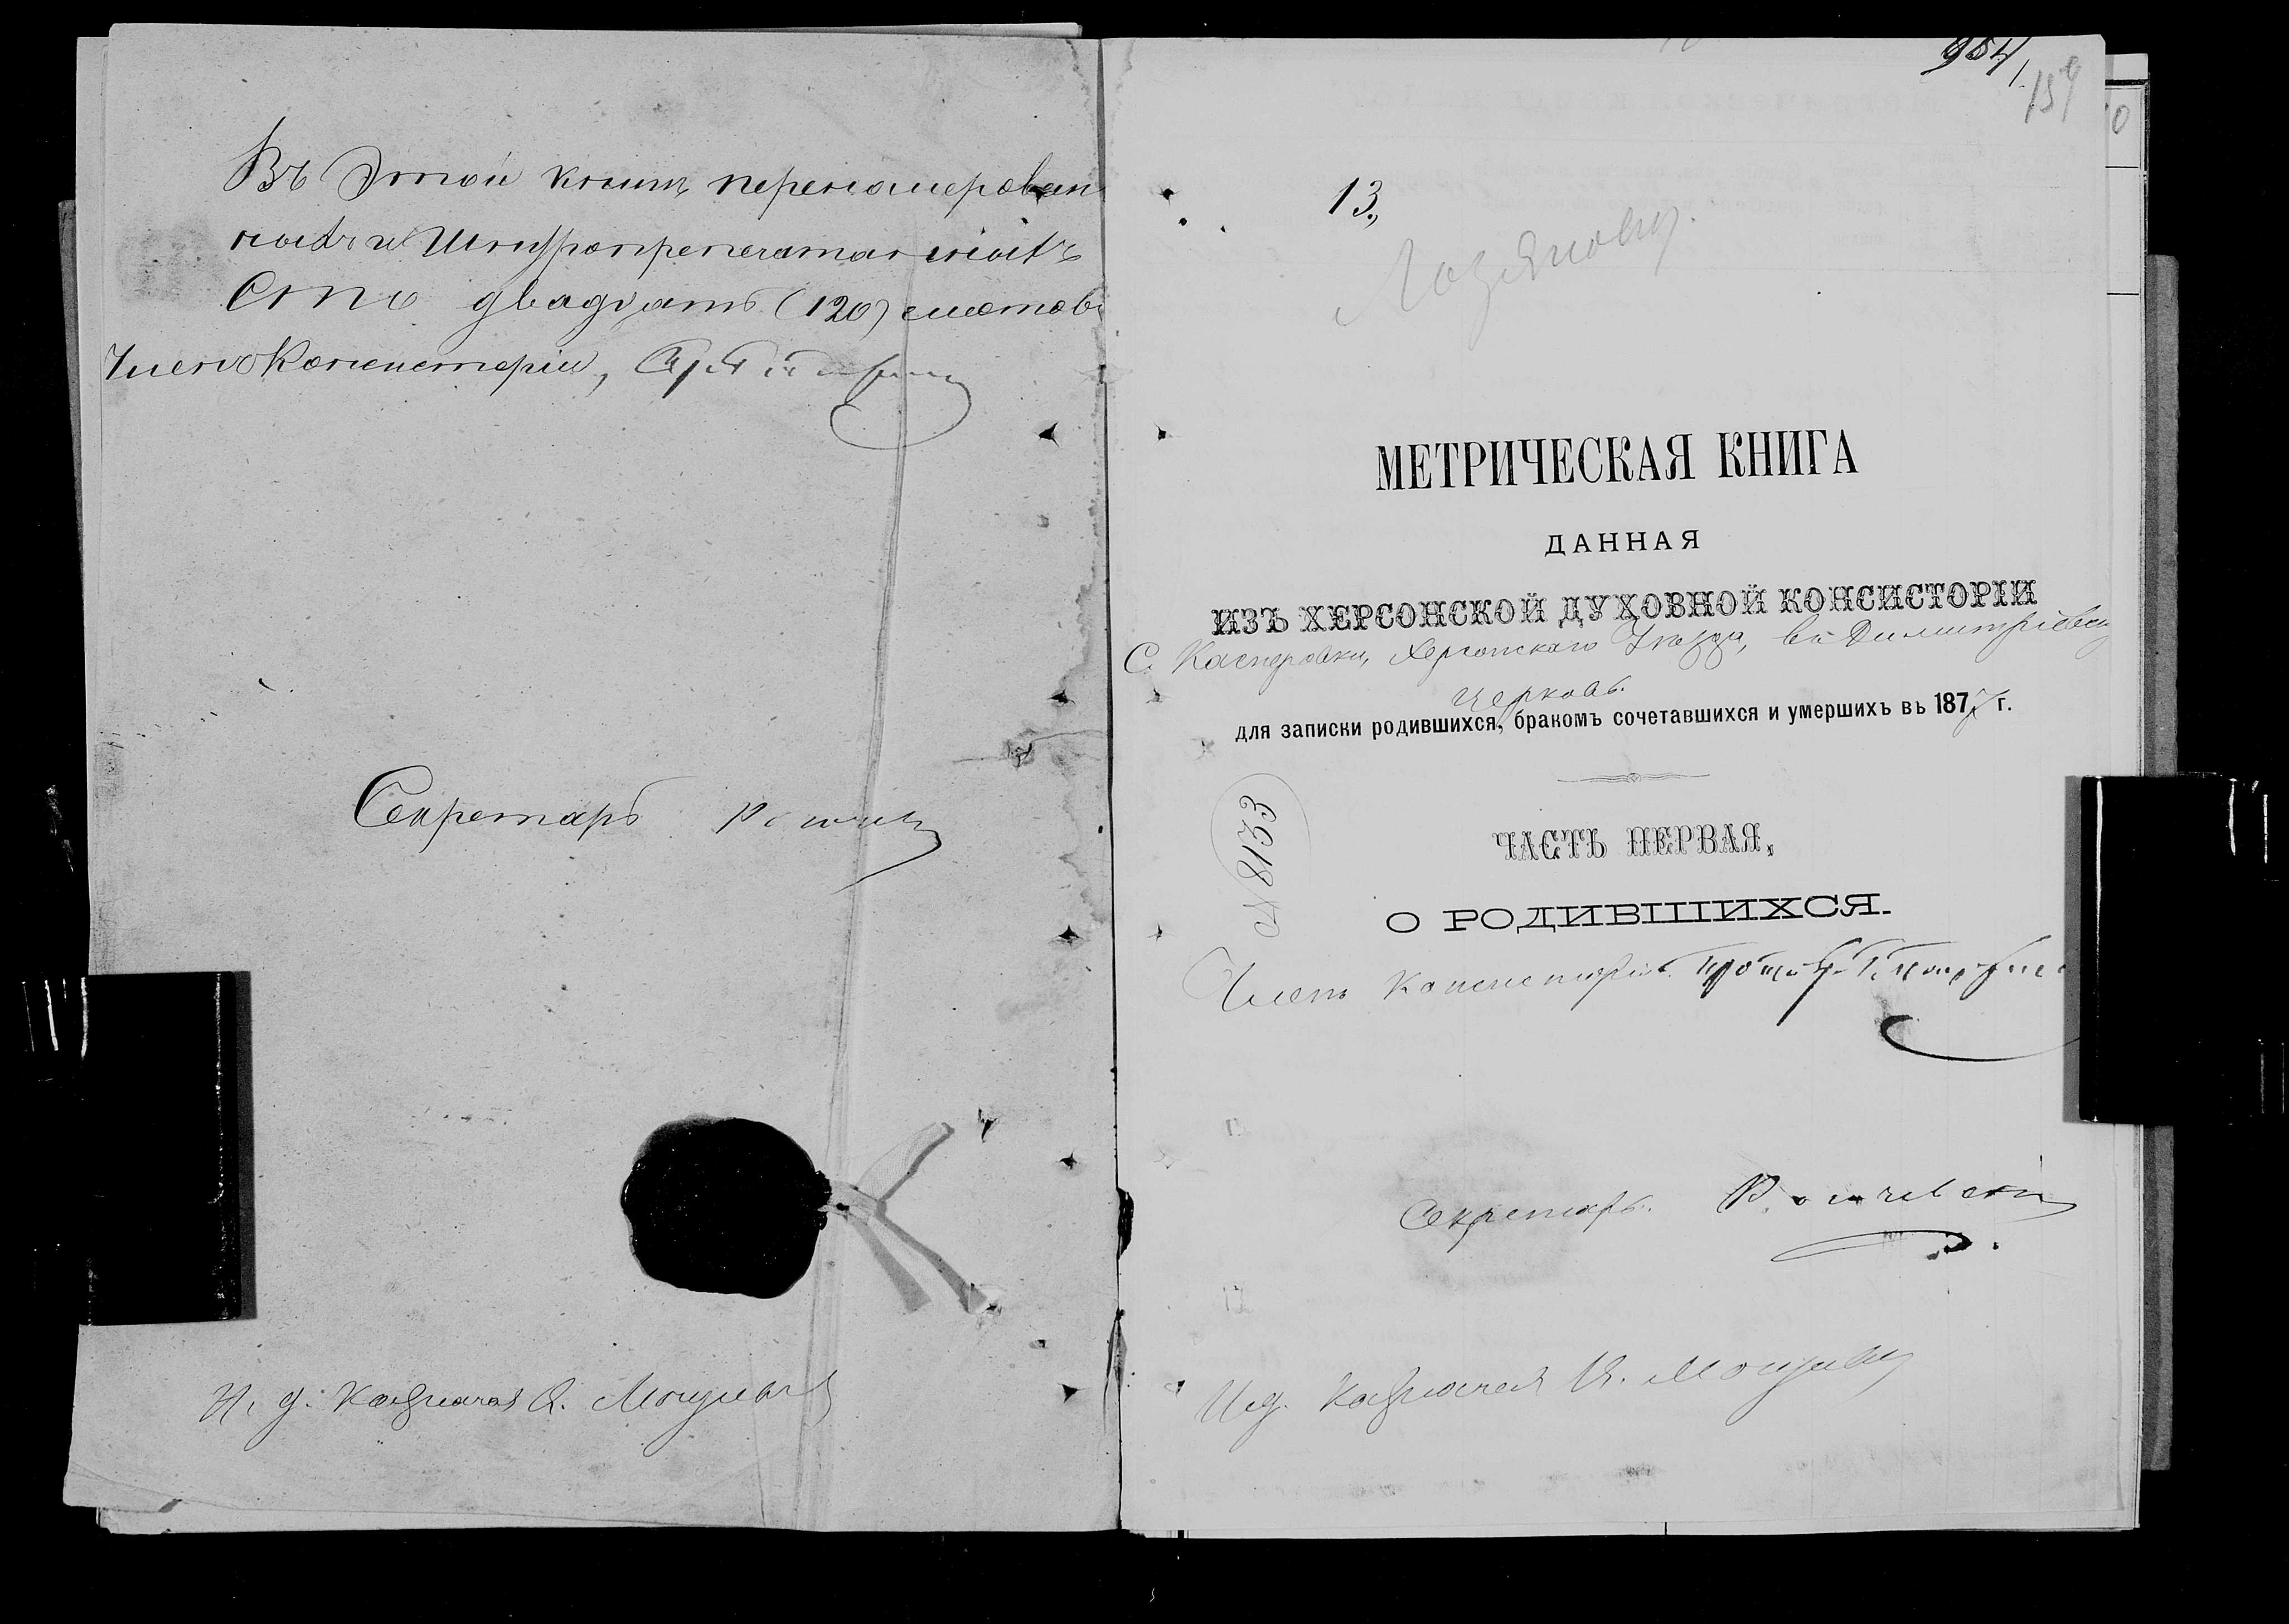 Въ этой книгѣ перенумерован
ныхъ и шнуропрепечатанныхъ
Сто двадцать (120) листовъ
Членъ Консисторіи,
Секретарь
И. д. Казначея
954
159
13.
МЕТРИЧЕСКАЯ КНИГА
ДАННАЯ
ИЗЪ ХЕРСОНСКОЙ ДУХОВНОЙ КОНСИСТОРІИ
С. Касперовки, Херсонскаго Уѣзда, въ Димитріевск
церковь.
для записки родившихся, бракомъ сочетавшихся и умершихъ въ 1877 г.
№ 8133
ЧАСТЬ ПЕРВАЯ,
О РОДИВШИХСЯ.
Членъ Консисторіи
Секретарь.
И. д. Казначея